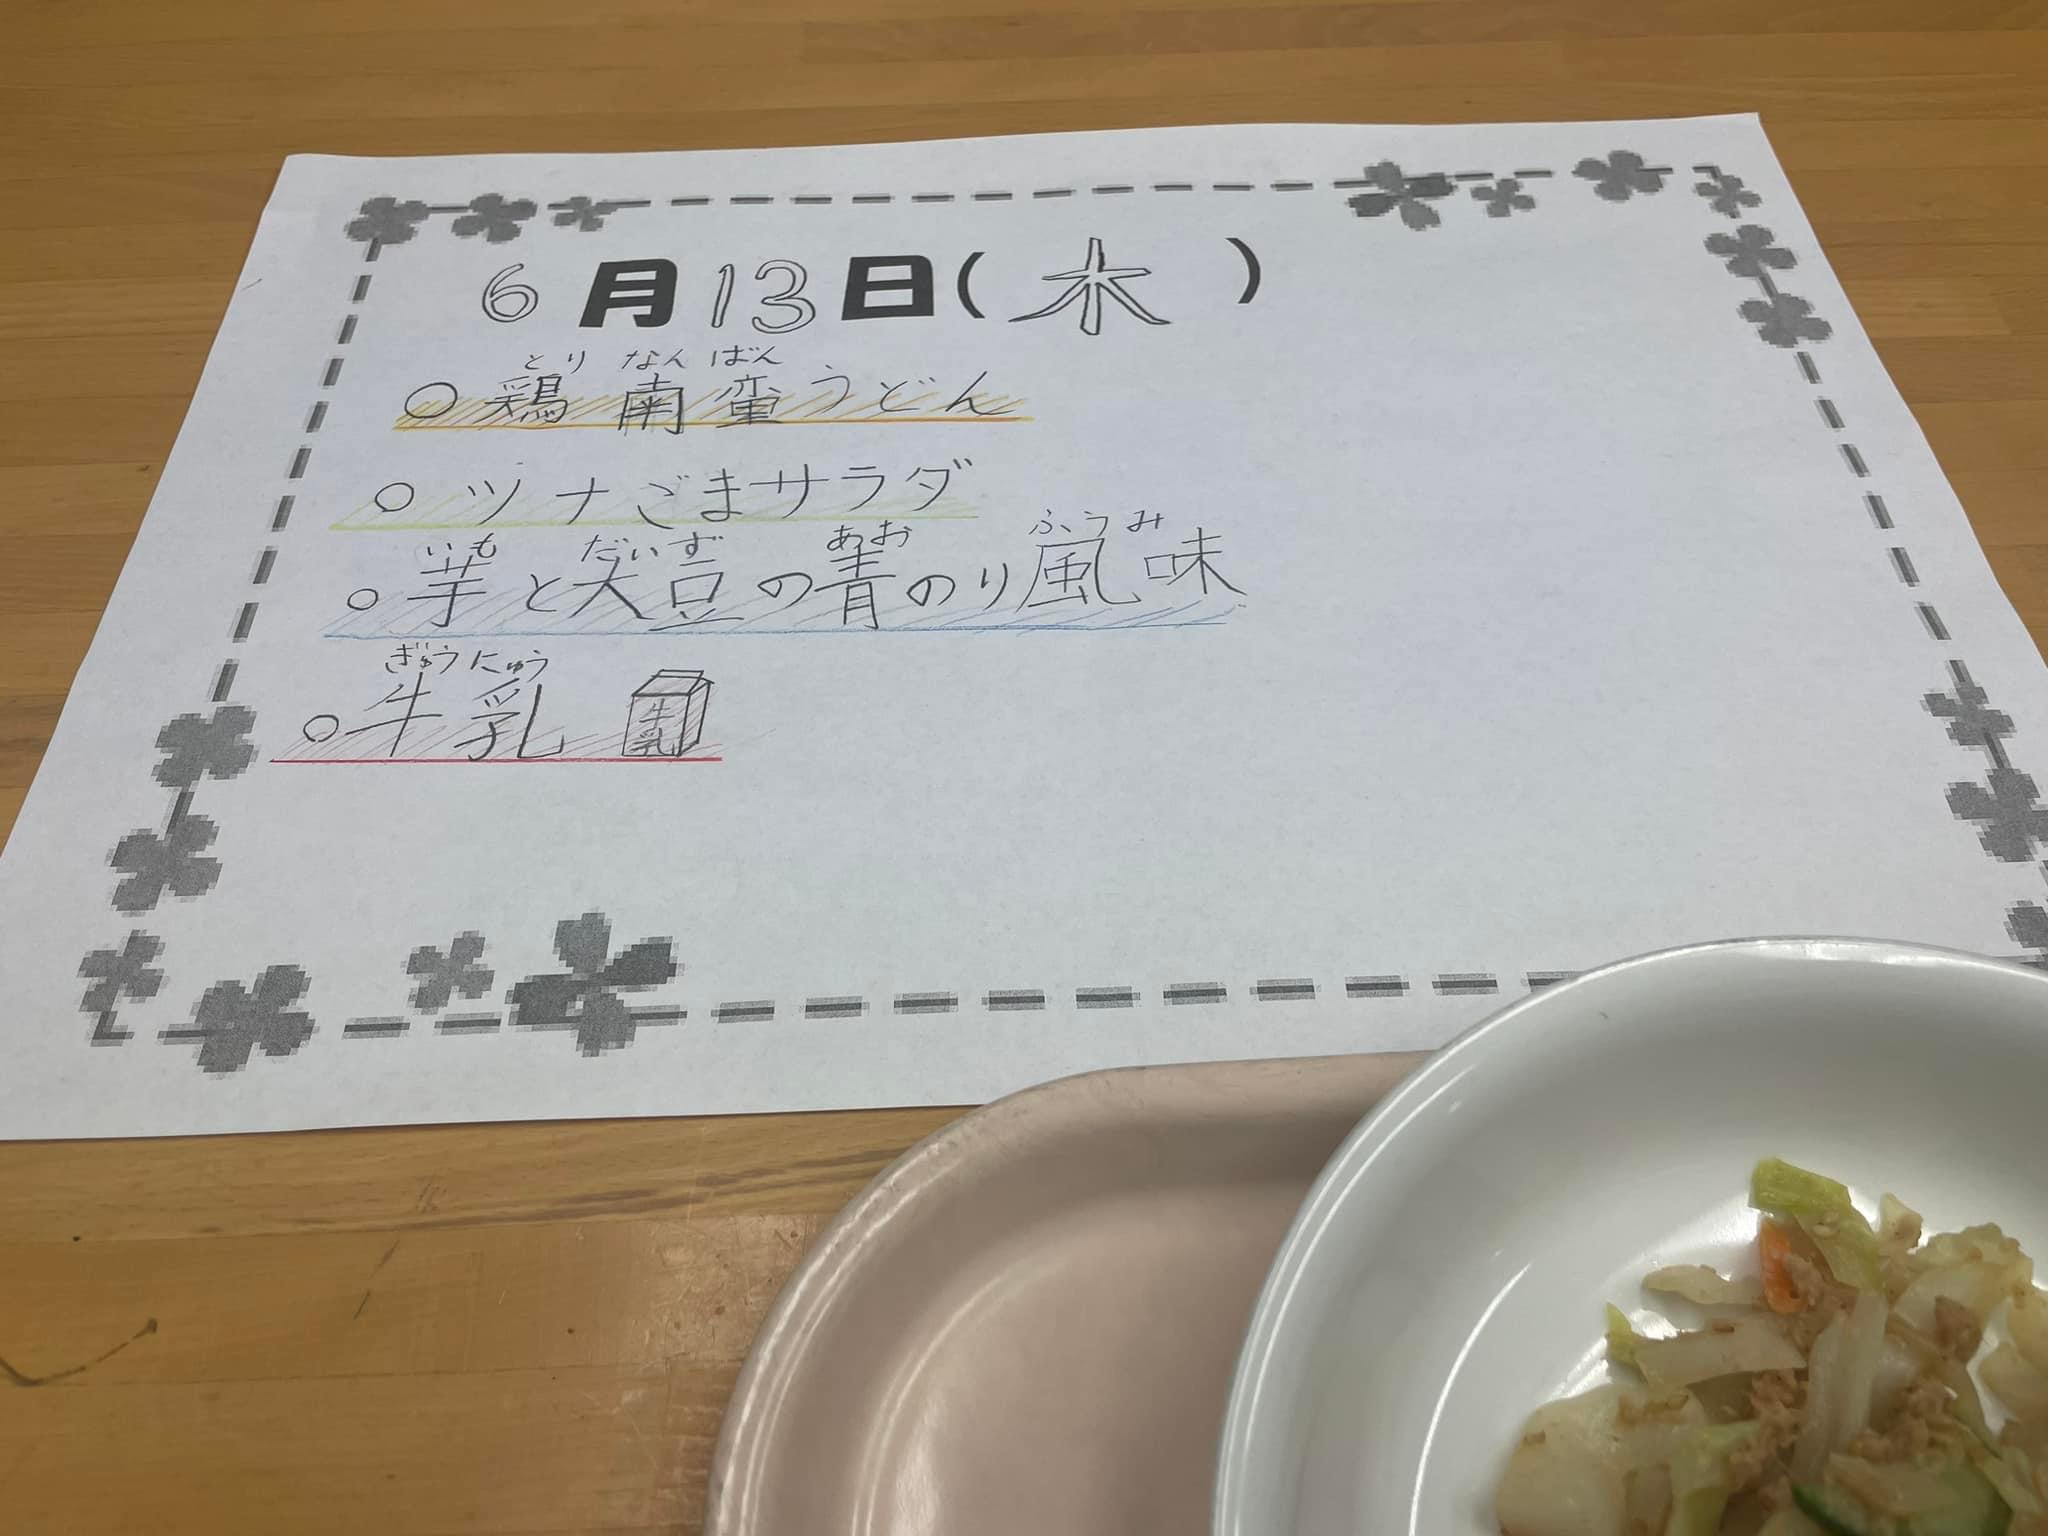 6月13日(木)
とり なんばん
○鶏南蛮うどん
○ツナごまサラダ
いも だいず あお ふうみ
○芋と大豆の青のり風味
ぎゅうにゅう
○牛乳 牛乳